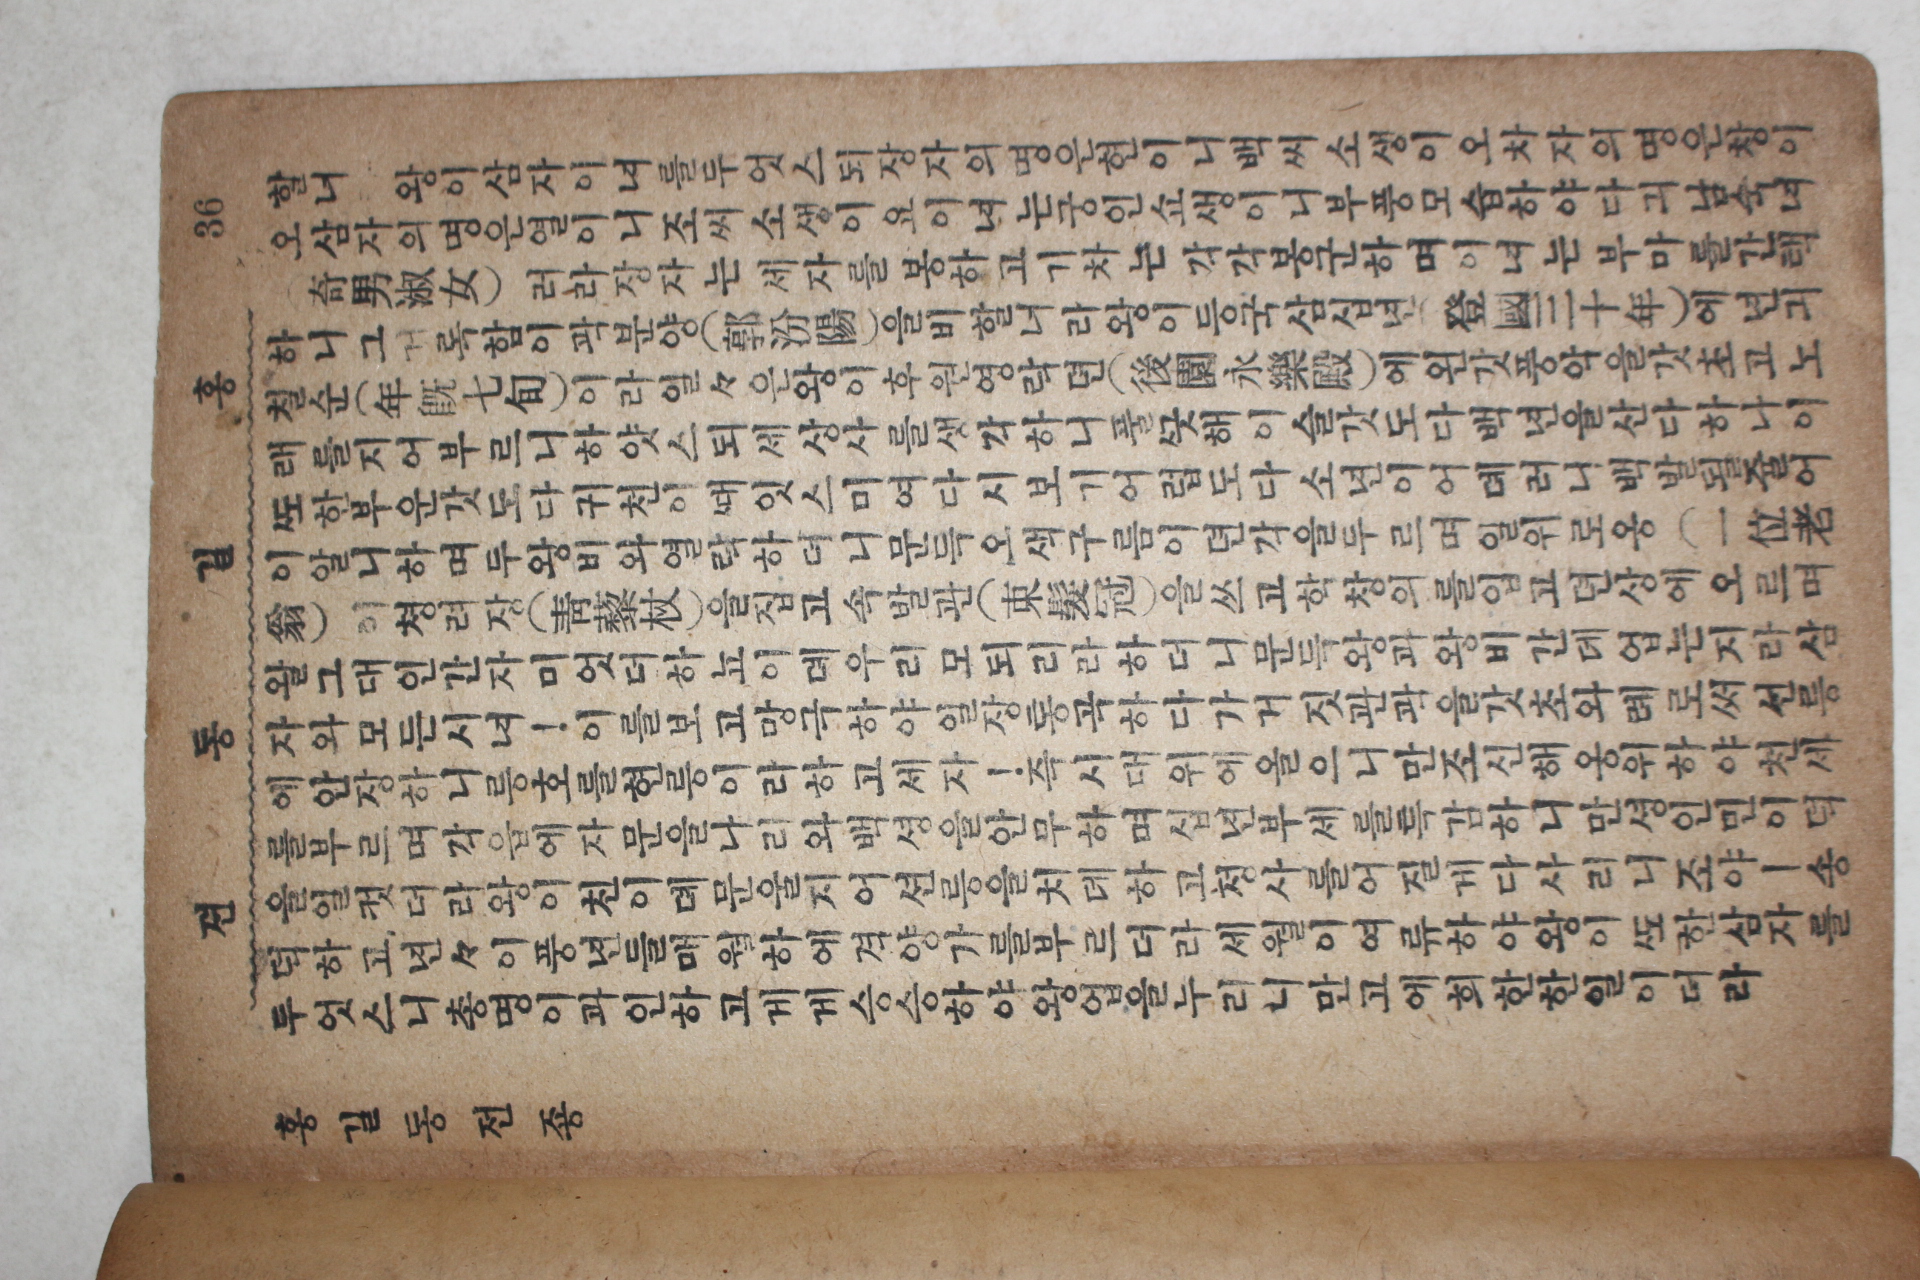 36
홍길동젼
할녀 왕이삼자이녀를두엇스되장자의명은현이니백씨소생이오차자의명은창이
오삼자의명은열이니조씨소생이요이녀는궁인쇼생이니부풍모습하야다긔남숙녀
(奇男淑女)러라장자는세자를봉하고기차는각각봉군하며이녀는부마를간택
하니그거록함이곽분양(郭汾陽)을비할너라왕이등국삼십년(登國三十年)에년긔
칠순(年旣七旬)이라일々은왕이후원영락뎐(後園永樂殿)에왼갓풍악을갓초고노
래를지어부르니하얏스되세상사를생각하니풀긋해이슬갓도다백년을산다하나이
ᄯᅩ한부운갓도다귀천이ᄯᅢ잇스미여다시보기어렵도다소년이어뎨러니백발될쥴어
이알니하며두왕비와열락하더니문득오색구름이뎐각을두르며일위로옹(一位老
翁)이쳥려장(靑藜杖)을집고속발관(束髮冠)을쓰고학창의를입고뎐상에오르며
왈그대인간자미엇더하뇨이뎨우리모되리라하더니문득왕과왕비간데업는지라삼
자와모든시녀!이를보고망극하야일장통곡하다가거짓관곽을갓초와례로써선릉
에안장하니릉호를현릉이라하고세자!즉시대위에올으니만조신해옹위하야천세
를부르며각읍에자문을나리와백셩을안무하며십년부세를특감하니만셩인민이덕
을일컷더라왕이친이뎨문울지어션릉을치뎨하고졍사를어질게다사리니조야ㅣ송
덕하고년々이풍년들매월하에격양가를부르더라세월이여류하야왕이ᄯᅩ한삼자를
두엇스니총명이과인하고게게승승하야왕업을누리니만고에희한한일이더라
홍길동전죵